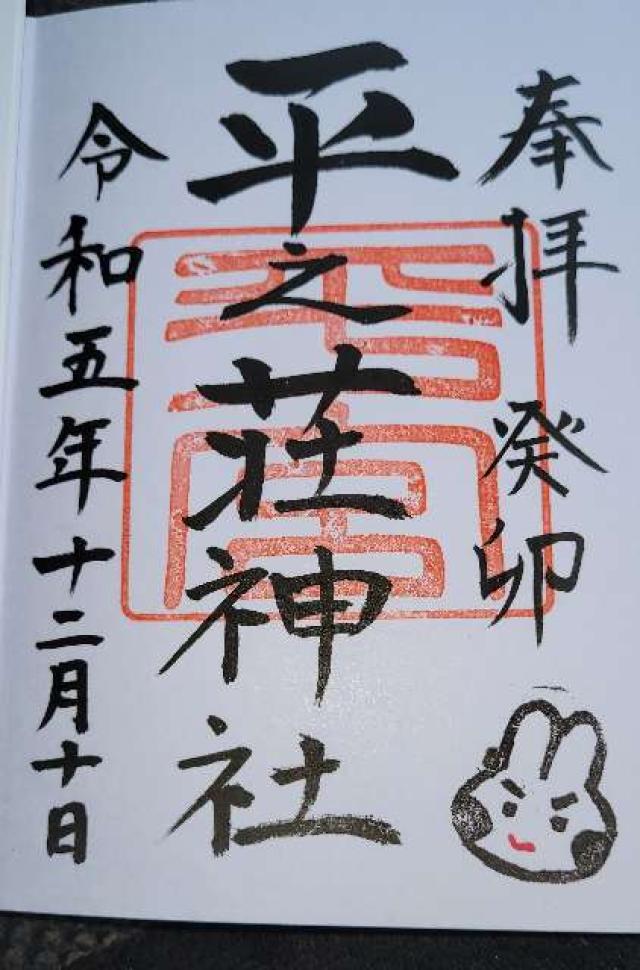 奉拝 癸卯
平之荘神社
令和五年十二月十日